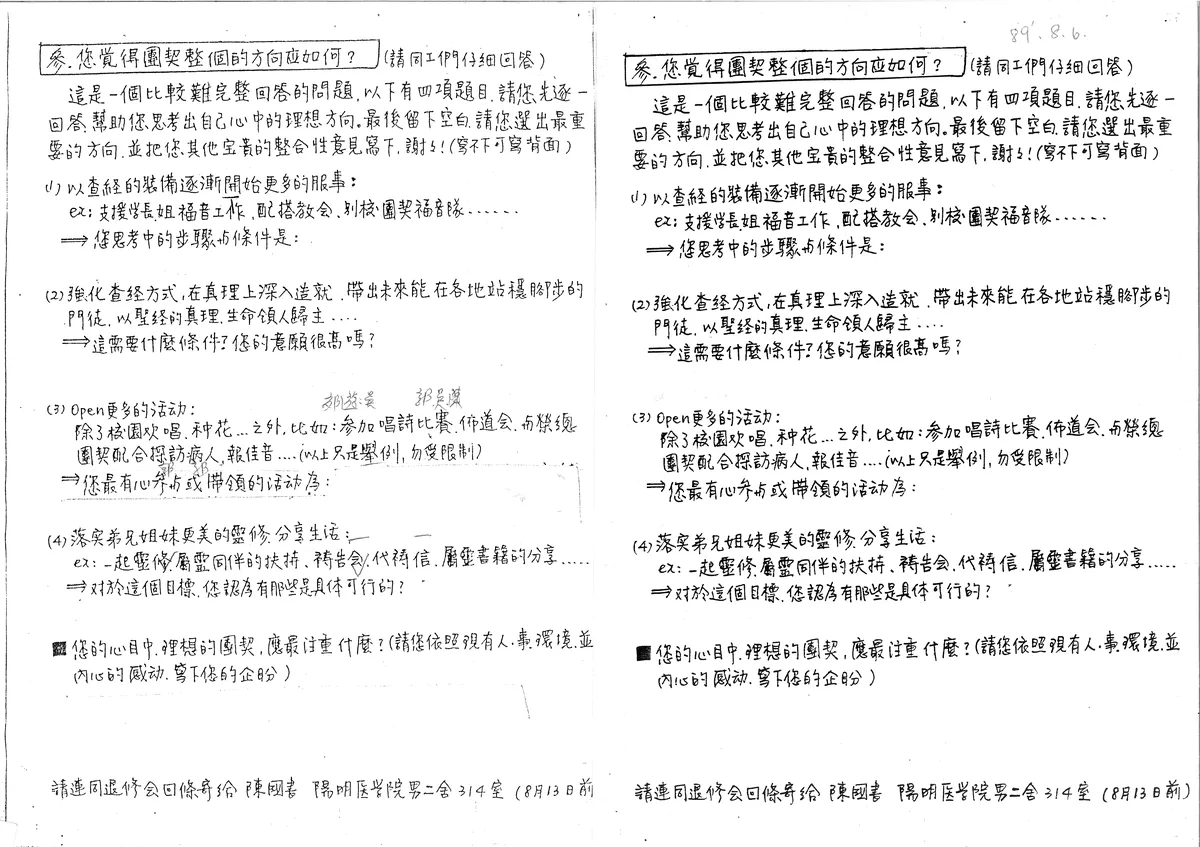 參.您覺得團契整個的方向应如何？(請同工們仔細回答)
這是一個比較難完整回答的問題，以下有四項題目，請您先逐一
回答，幫助您思考出自己心中的理想方向。最後留下空白，請您選出最重
要的方向，並把您其他宝貴的整合性意見寫下，謝謝！(寫不下可寫背面)
(1) 以查経的裝備逐漸開始更多的服事：
ex：支援学長.姐福音工作，配搭教会、別校團契福音隊......
⟹您思考中的步驟与條件是：
(2) 強化查経方式，在真理上深入造就，帶出未來能在各地站穩腳步的
門徒，以聖経的真理、生命領人歸主....
⟹這需要什麼條件？您的意願很高嗎？
(3) Open更多的活动：
除了校園欢唱、种花...之外，比如：參加唱詩比賽、佈道会、与榮總
團契配合探訪病人，報佳音....(以上只是舉例，勿受限制)
⟹您最有心參与或帶領的活动為：
(4) 落实弟兄姐妹更美的靈修、分享生活：
ex：一起靈修、屬靈同伴的扶持、禱告会、代禱信、屬靈書籍的分享.....
⟹对於這個目標，您認為有那些是具体可行的？
■您的心目中，理想的團契，應最注重什麼？(請您依照現有人、事、環境，並
內心的感动，寫下您的企盼)
請連同退修会回條寄給 陳國書 陽明医学院男二舍314室 (8月13日前
89'.8.6.
參.您覺得團契整個的方向应如何？(請同工們仔細回答)
這是一個比較難完整回答的問題，以下有四項題目，請您先逐一
回答，幫助您思考出自己心中的理想方向。最後留下空白，請您選出最重
要的方向，並把您其他宝貴的整合性意見寫下，謝謝！(寫不下可寫背面)
(1) 以查経的裝備逐漸開始更多的服事：
ex：支援学長.姐福音工作，配搭教会、別校團契福音隊......
⟹您思考中的步驟与條件是：
(2) 強化查経方式，在真理上深入造就，帶出未來能在各地站穩腳步的
門徒，以聖経的真理、生命領人歸主....
⟹這需要什麼條件？您的意願很高嗎？
(3) Open更多的活动：
除了校園欢唱、种花...之外，比如：參加唱詩比賽、佈道会、与榮總
團契配合探訪病人，報佳音....(以上只是舉例，勿受限制)
⟹您最有心參与或帶領的活动為：
(4) 落实弟兄姐妹更美的靈修、分享生活：
ex：一起靈修、屬靈同伴的扶持、禱告会、代禱信、屬靈書籍的分享.....
⟹对於這個目標，您認為有那些是具体可行的？
■您的心目中，理想的團契，應最注重什麼？(請您依照現有人、事、環境，並
內心的感动，寫下您的企盼)
請連同退修会回條寄給 陳國書 陽明医学院男二舍314室 (8月13日前)